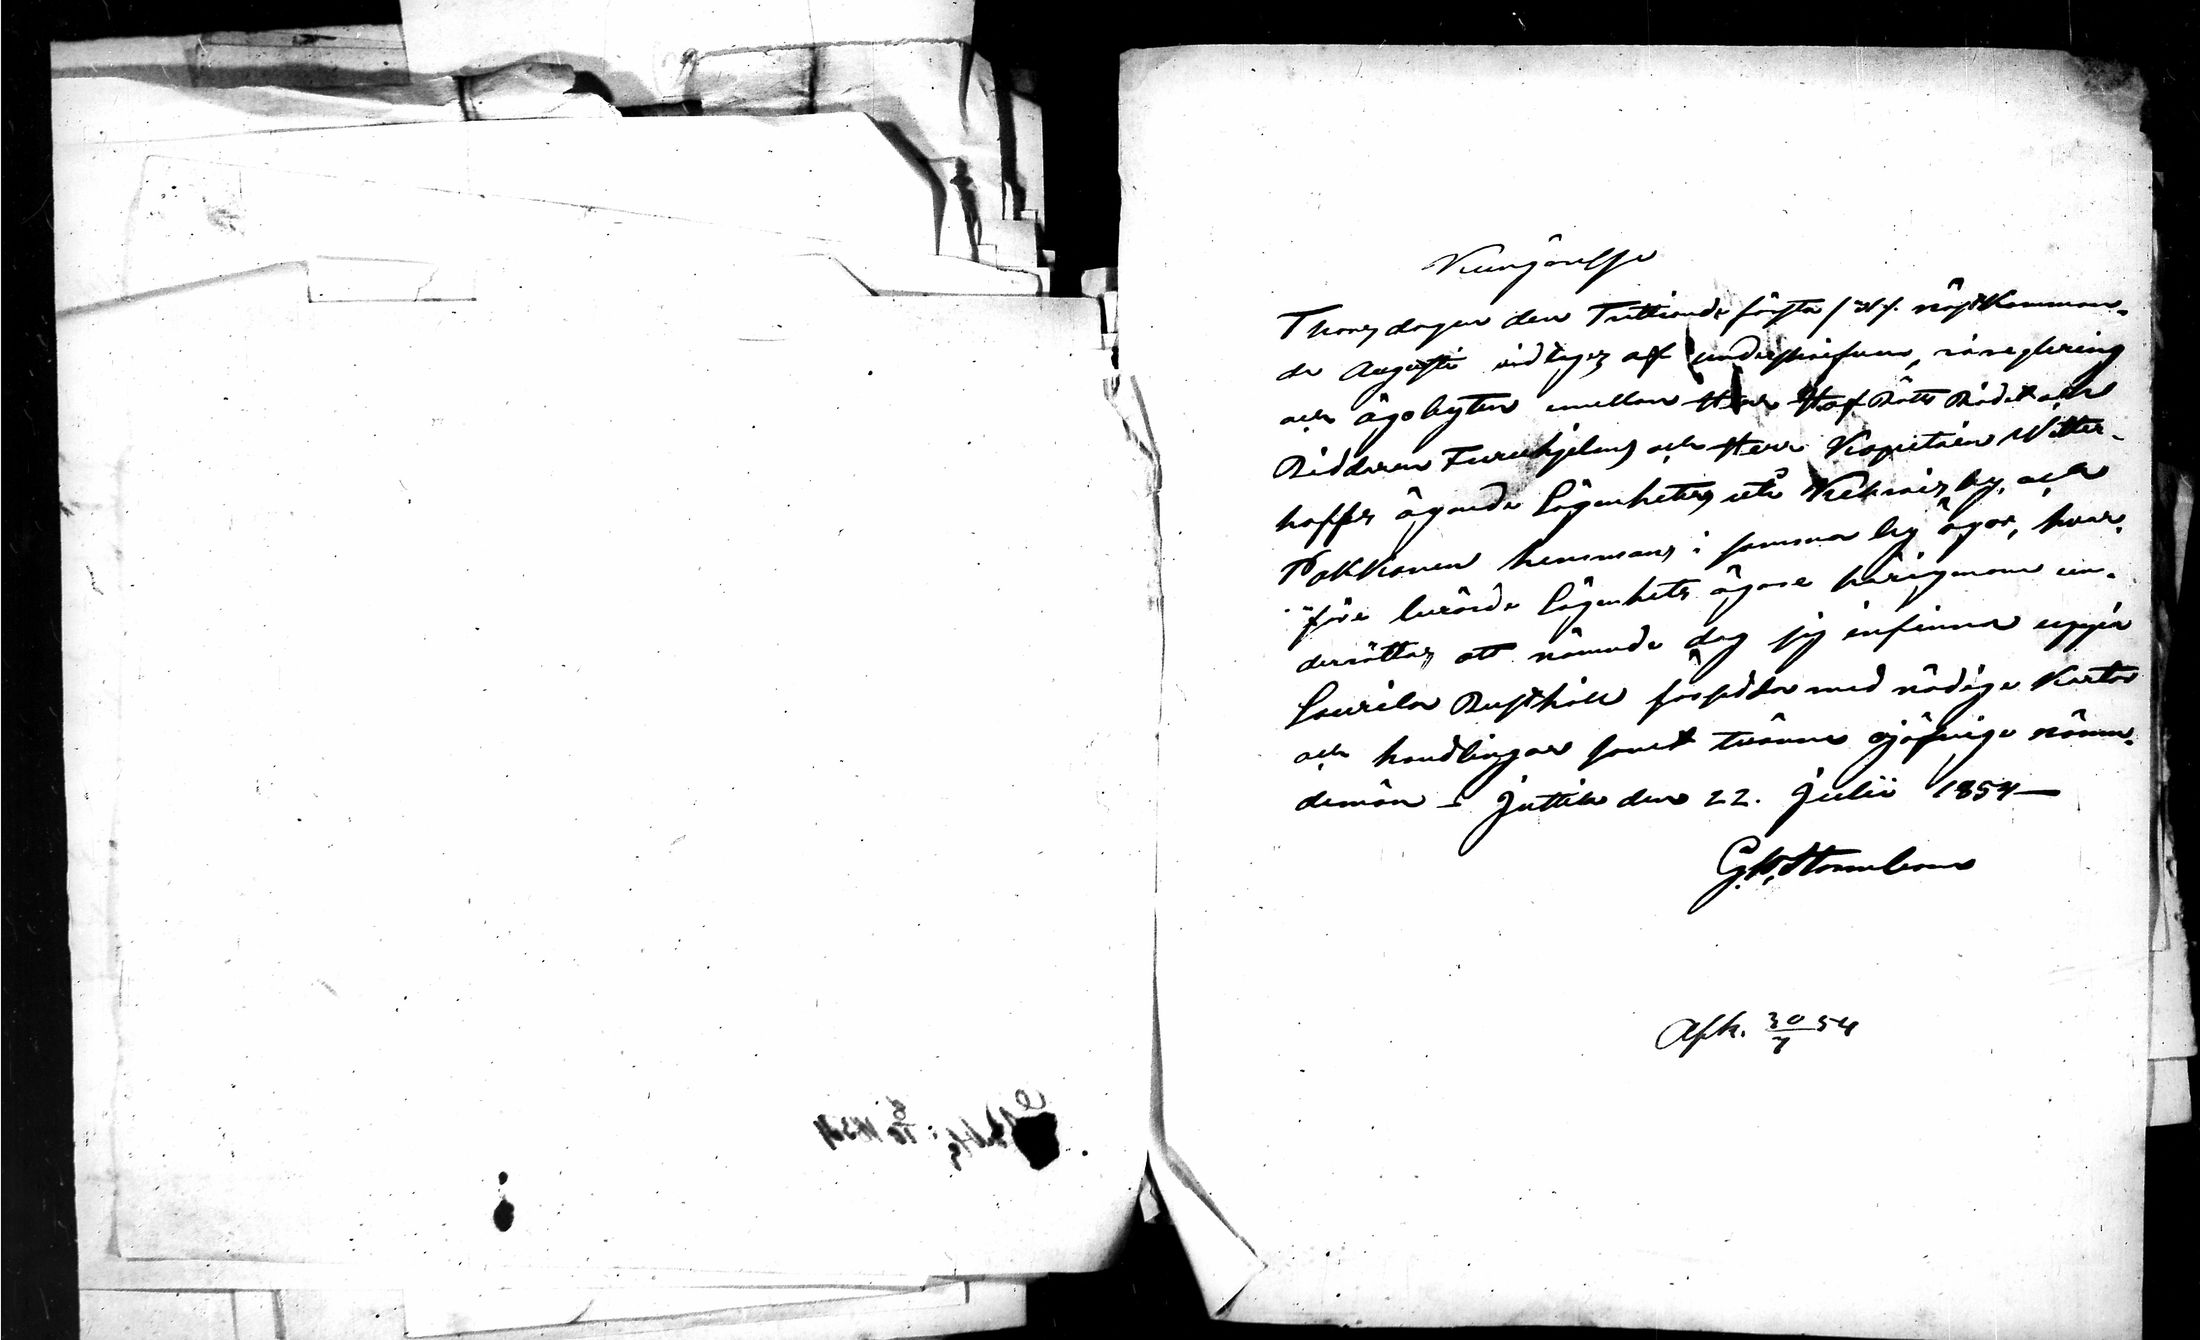 Kungörelse
Thorsdagen den Trettionde första /31/. nästkomman-
de Augusti vidtages af undertecknum, råreglering
och ägobyten emellan Herr Hof Rätts Rådet och
Riddaren Furuhjelms och Herr Kapitain Witter-
hoffs ägande lägenheter uti by, och
Pokkionen hemmans i samma by ägor, hvar-
före berörde lägenhets ägare härigenom un-
derrättas att nämnde dag sig infinna uppå
Laurila Rusthåll försedda med nödige Kartor
och handlingar samt tvänne ojäfvige nämn-
demän – Juttila den 22. Julii 1854 —
Afk. 30/7 54